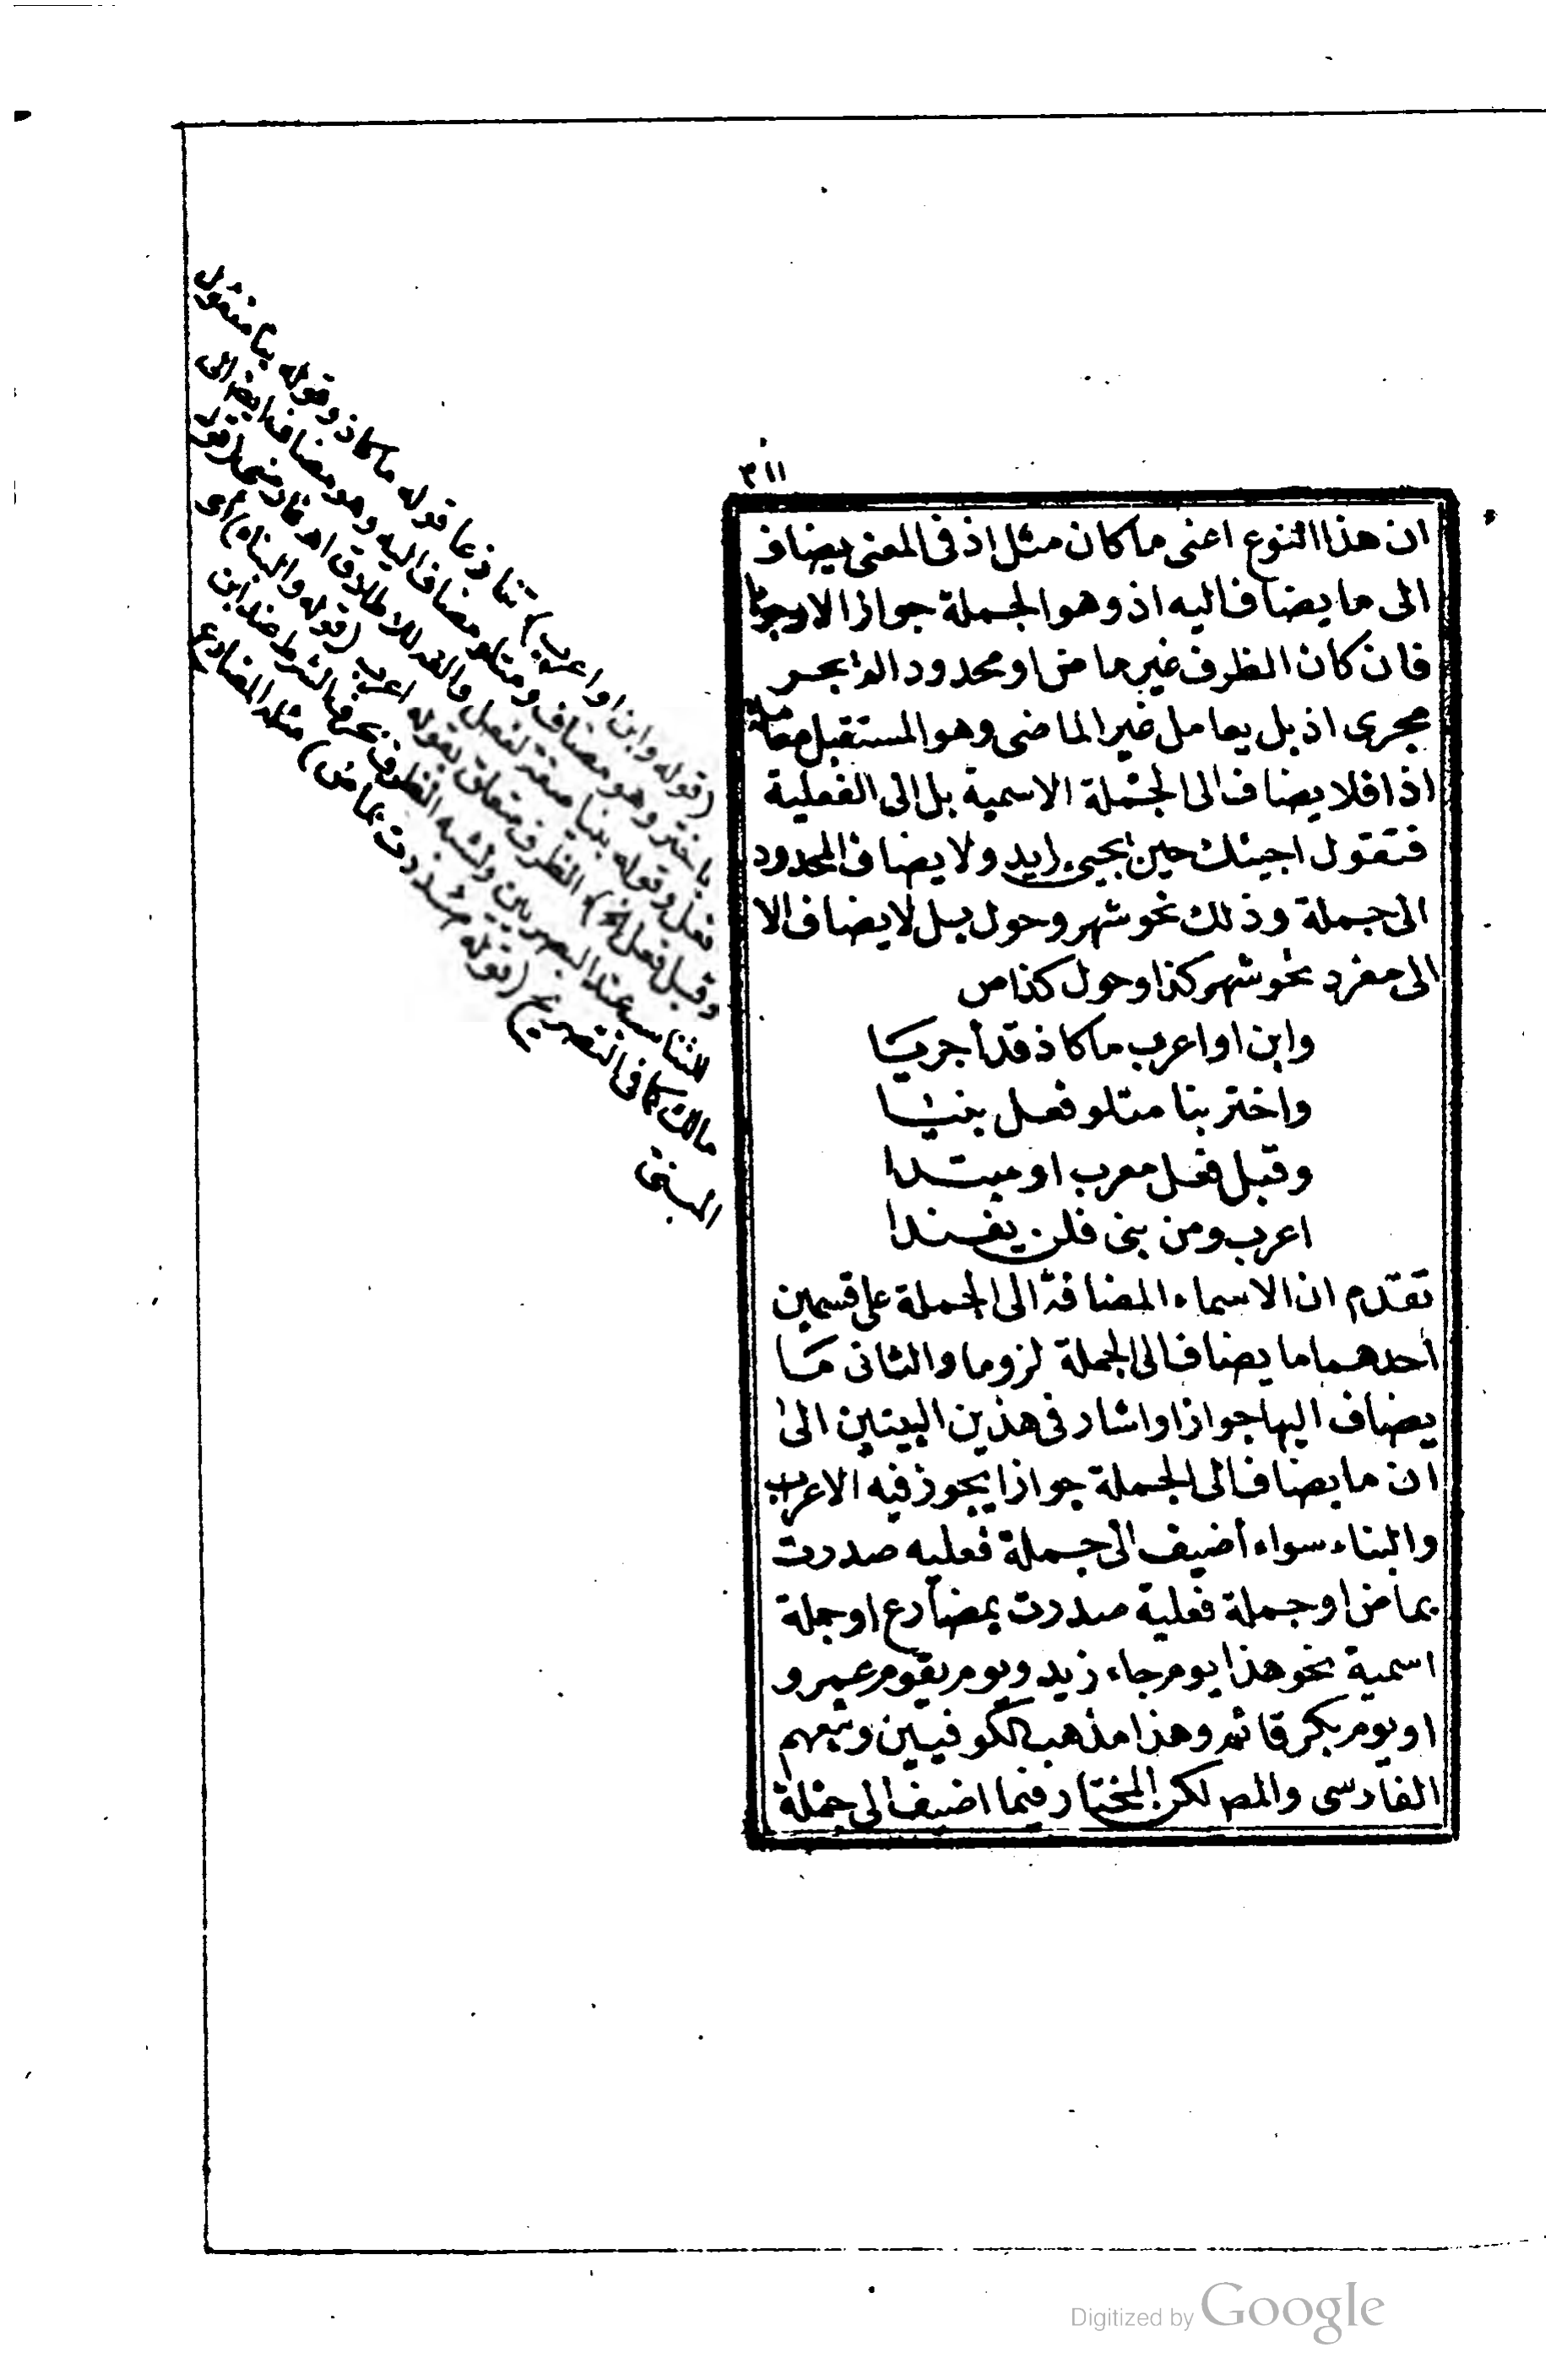 ٣١١
ان هذا النوع اعنى ما كان مثل اذ فى المعنى يضاف
الى ما يضاف اليه اذ وهو الجملة جوازا لا وجوبا
فان كان الظرف غير ماض او محدودا لم يجر
مجرى اذ بل يعامل غير الماضى وهو المستقبل معاملة
اذا فلا يضاف الى الجملة الاسمية بل الى الفعلية
فتقول اجيئك حين يجيىء زيد ولا يضاف المحدود
الى جملة وذلك نحو شهر وحول بل لا يضاف الا
الى مفرد نحو شهر كذا وحول كذا ص
وابن او اعرب ما كاذ قد أجريا
واختر بنا متلو فعل بنيا
وقبل فعل معرب او مبتدا
اعرب ومن بنى فلن يفندا
تقدم ان الاسماء المضافة الى الجملة على قسمين
أحدهما ما يضاف الى الجملة لزوما والثانى ما
يضاف اليها جوازا واشار فى هذين البيتين الى
ان ما يضاف الى الجملة جوازا يجوز فيه الاعراب
والبناء سواء أضيف الى جملة فعليه صدرت
بماض او جملة فعلية صدرت بمضارع او جملة
اسمية نحو هذا يوم جاء زيد ويوم يقوم عمرو
او يوم بكر قائم وهذا مذهب الكوفيين وتبعهم
الفارسى والمص لكن المختار فيما اضيف الى جملة
(قوله وابن او اعرب) تنازعا قوله ما كاذ وقوله بنا مفعول
باختر وهو مضاف ومتلو مضاف اليه وهو مضاف ايض الى
فعل وقوله بنيا صفة لفعل والفه للاطلاق اهـ
وقبل فعل الخ) الظرف متعلق بقوله اعرب (قوله والبناء) اى
للتناسب عند البصريين ولشبه الظرف بحرف الشرط عند ابن
مالك كما فى التصريح (قوله صدرت بماض) مثله المضارع
المبنى
Digitized by Google